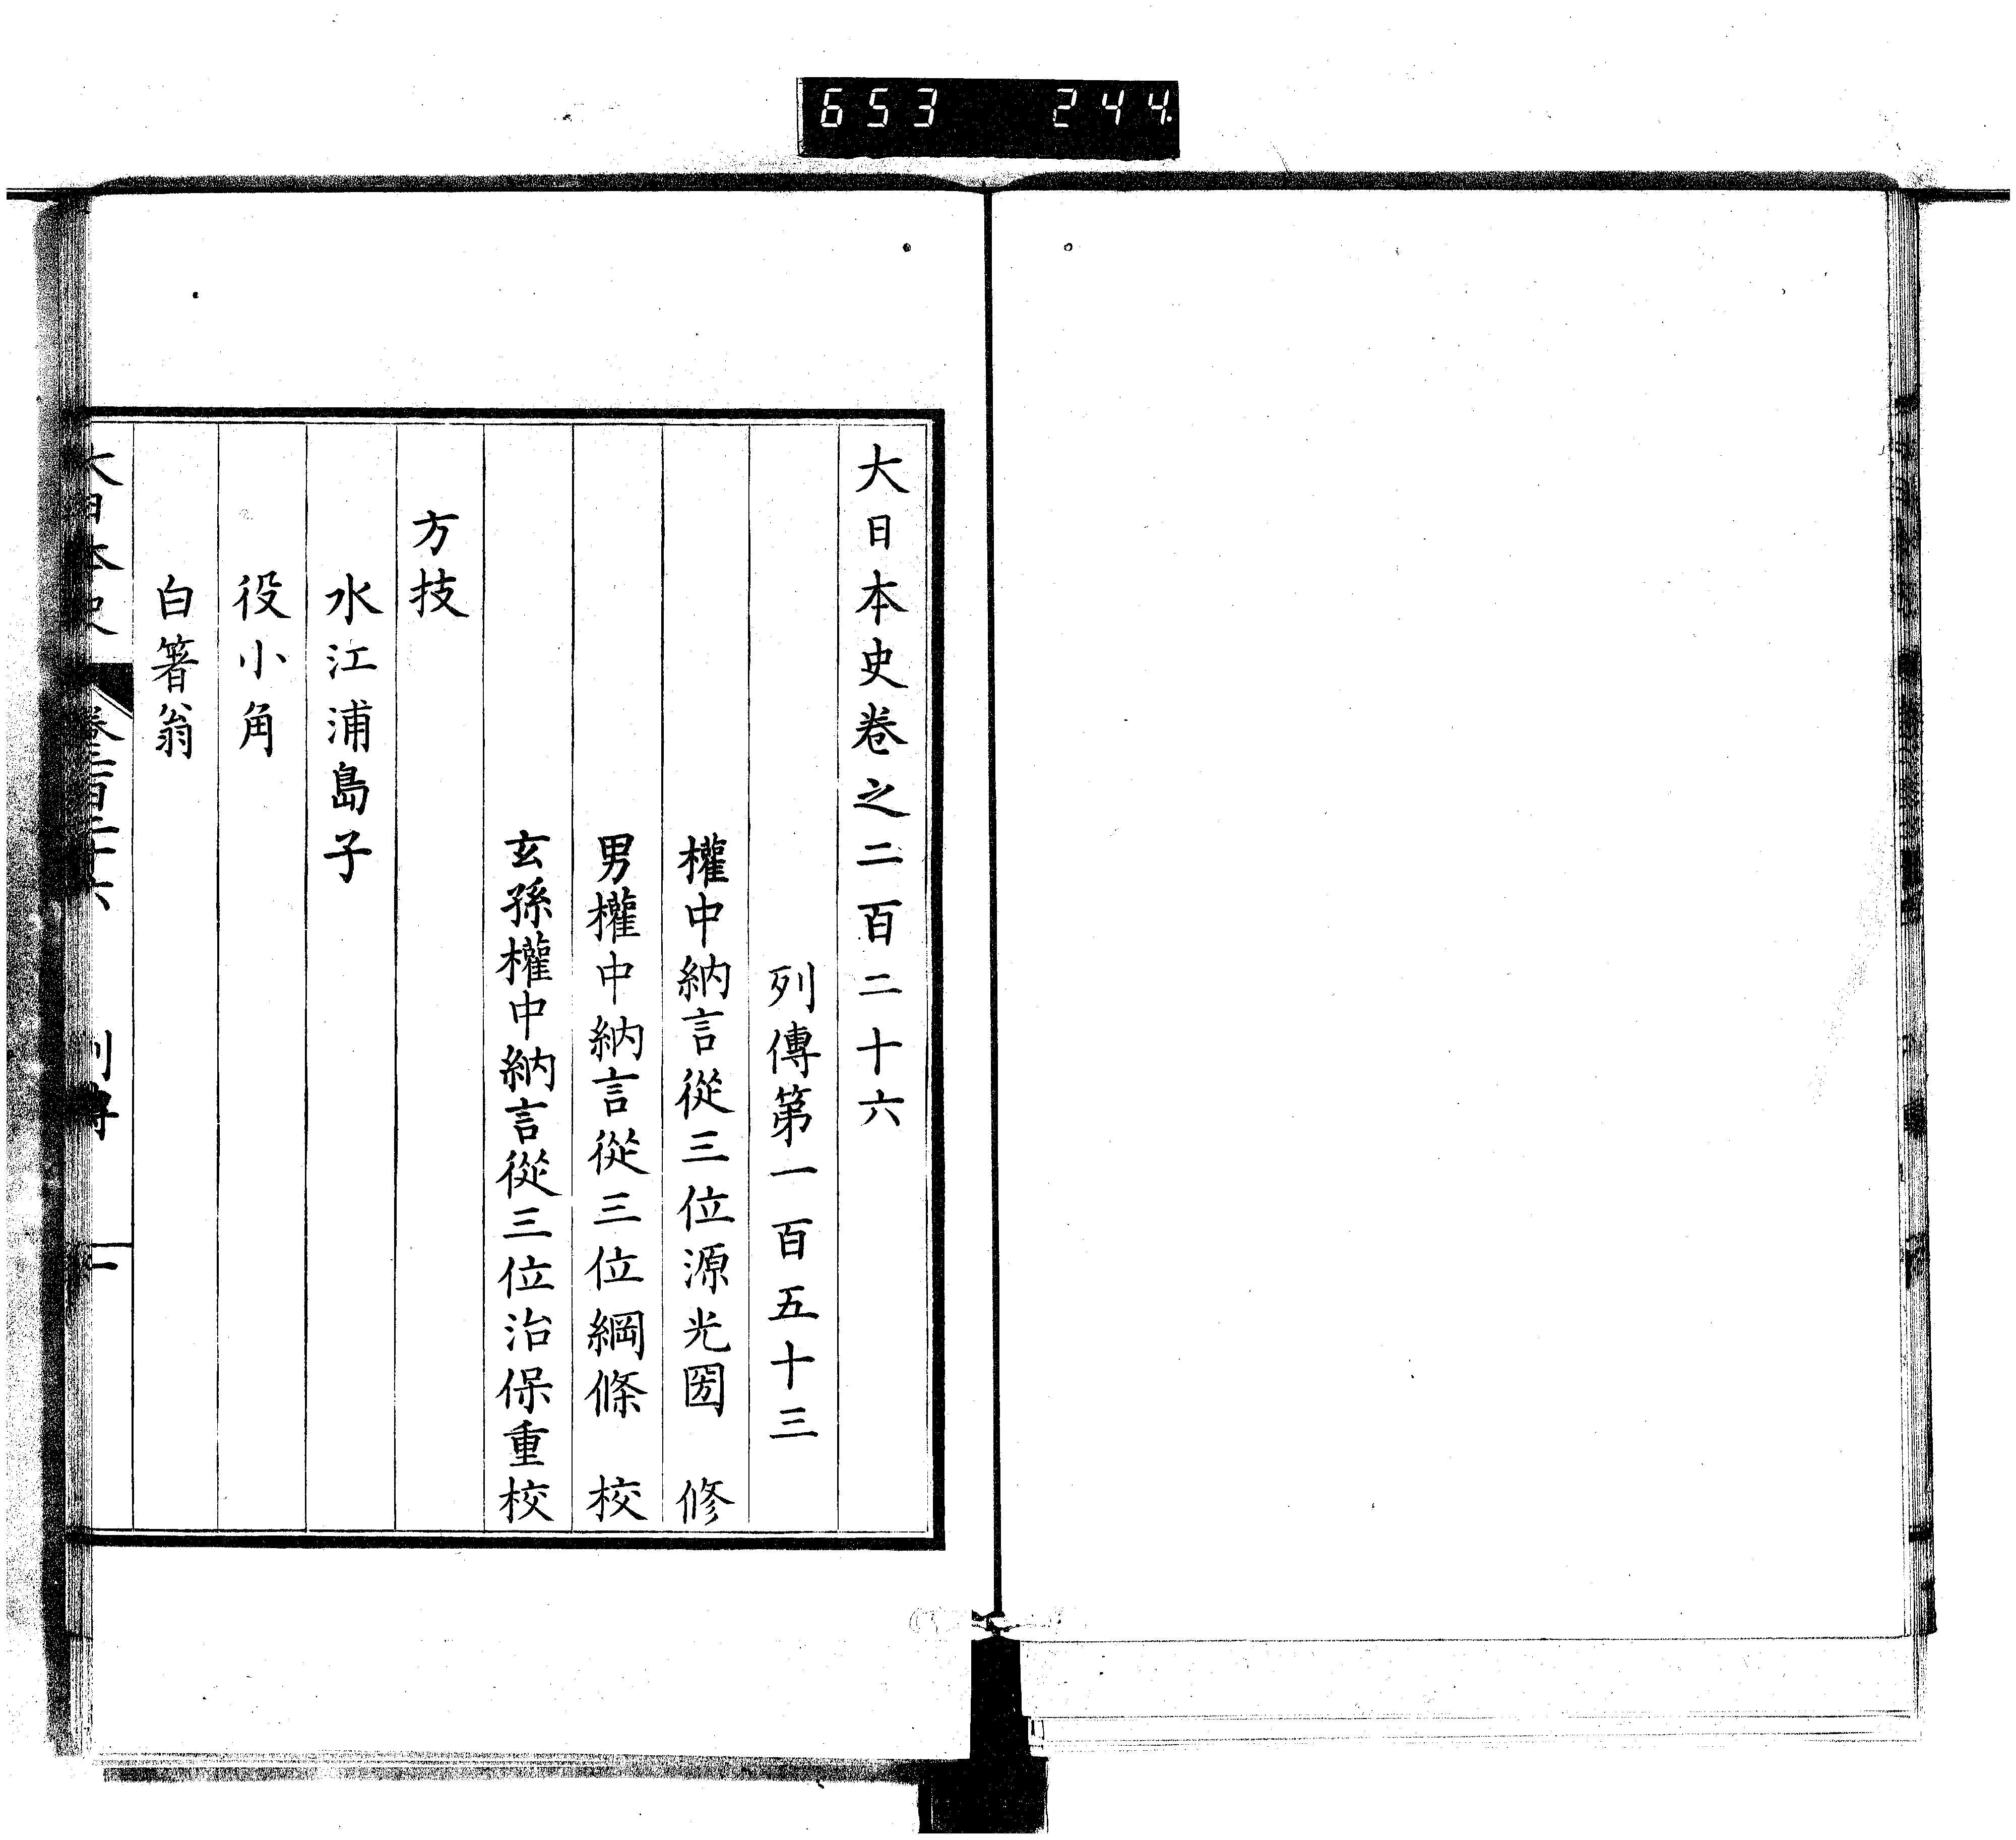 653 244.
大日本史卷之二百二十六
列傳第一百五十三
權中納言從三位源光圀 修
男權中納言從三位綱條 校
玄孫權中納言從三位治保重校
方技
水江浦島子
役小角
白箸翁
大日本史 卷二百二十六 列傳 一